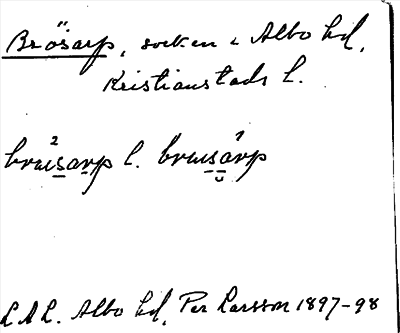 Brösarp, socken i Albo hd,
Kristianstads l.
brusarp l. brusarp
L.A.L. Albo hd, Per Larsson 1897-98